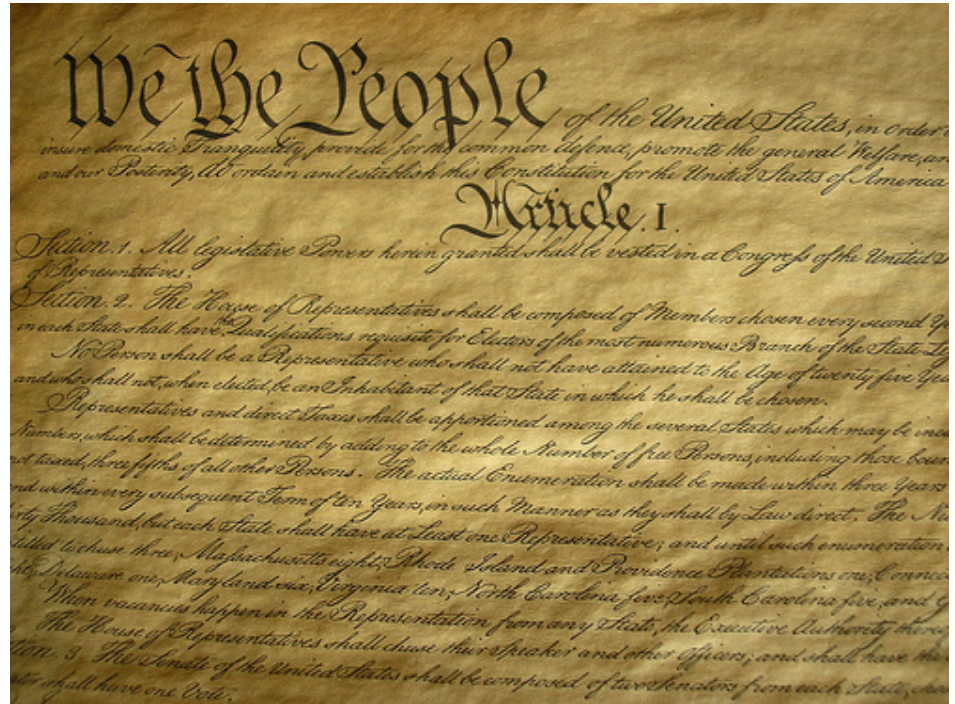 We the People of the United States, in order
insure domestic Tranquility, provide for the common defence, promote the general Welfare, an
and our Posterity, do ordain and establish this Constitution for the United States of America
Article. I.
Section. 1. All legislative Powers herein granted shall be vested in a Congress of the United S
of Representatives.
Section. 2. The House of Representatives shall be composed of Members chosen every second Ye
in each State shall have the Qualifications requisite for Electors of the most numerous Branch of the State Leg
No Person shall be a Representative who shall not have attained to the Age of twenty five Yea
and who shall not, when elected, be an Inhabitant of that State in which he shall be chosen.
Representatives and direct Taxes shall be apportioned among the several States which may be inc
Numbers, which shall be determined by adding to the whole Number of free Persons, including those boun
not taxed, three fifths of all other Persons. The actual Enumeration shall be made within three Years
nd within every subsequent Term of ten Years, in such Manner as they shall by Law direct. The Nu
irty Thousand, but each State shall have at Least one Representative; and until such enumeration
titled to chuse three, Massachusetts eight, Rhode Island and Providence Plantations one, Connec
ht, Delaware one, Maryland six, Virginia ten, North Carolina five, South Carolina five, and G
When vacancies happen in the Representation from any State, the Executive Authority there
The House of Representatives shall chuse their Speaker and other Officers; and shall have the
tion. 3. The Senate of the United States shall be composed of two Senators from each State, chos
tor shall have one Vote.